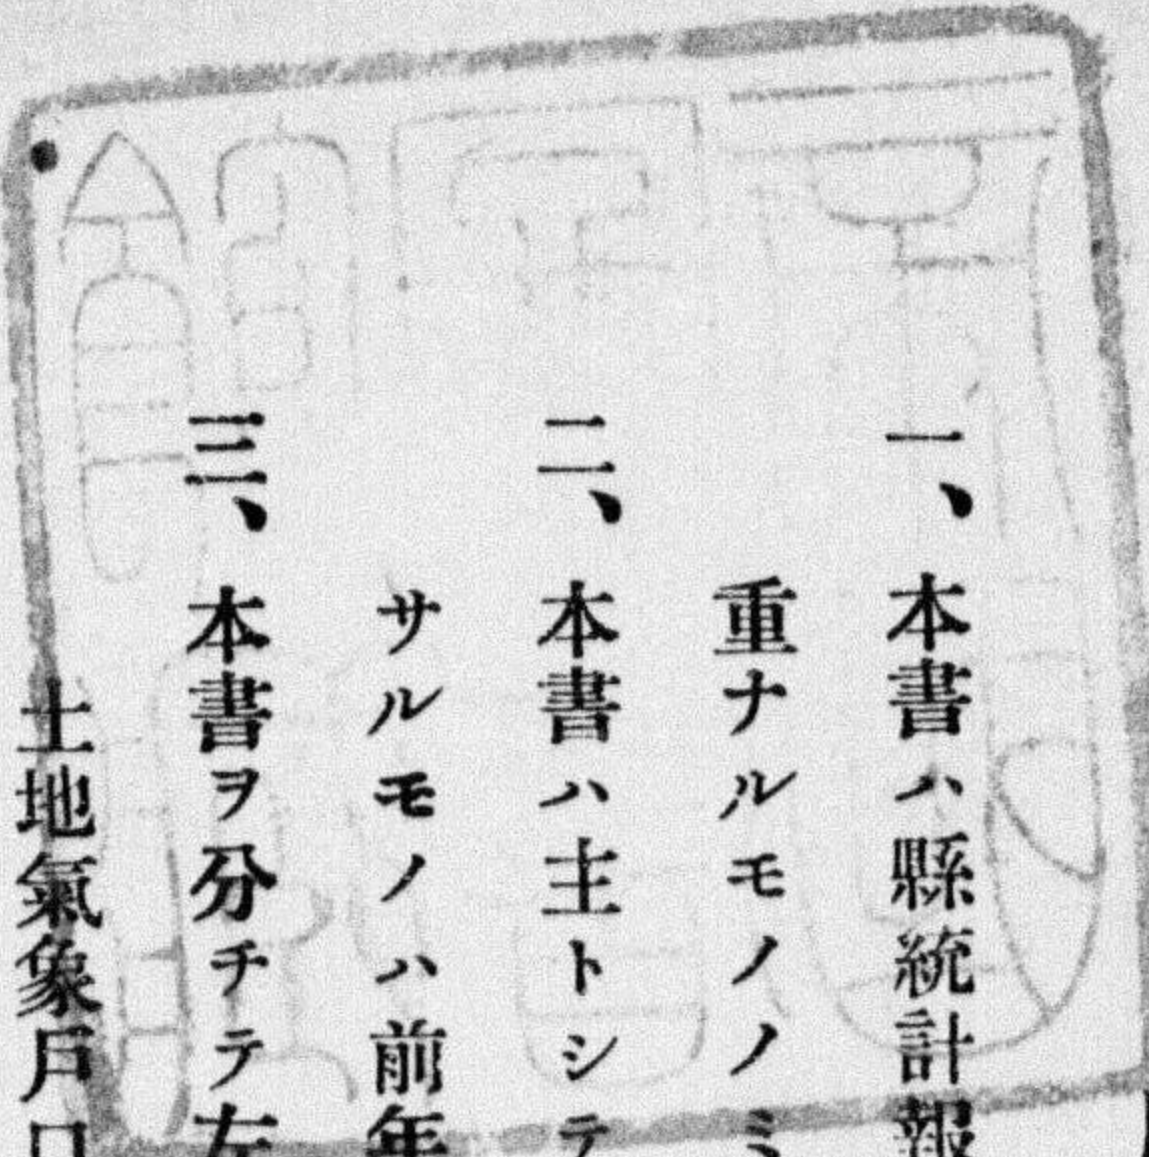 一、本書ハ縣統計報
重ナルモノノミ
二、本書ハ主トシテ
サルモノハ前年
三、本書ヲ分チテ左
土地氣象戶口